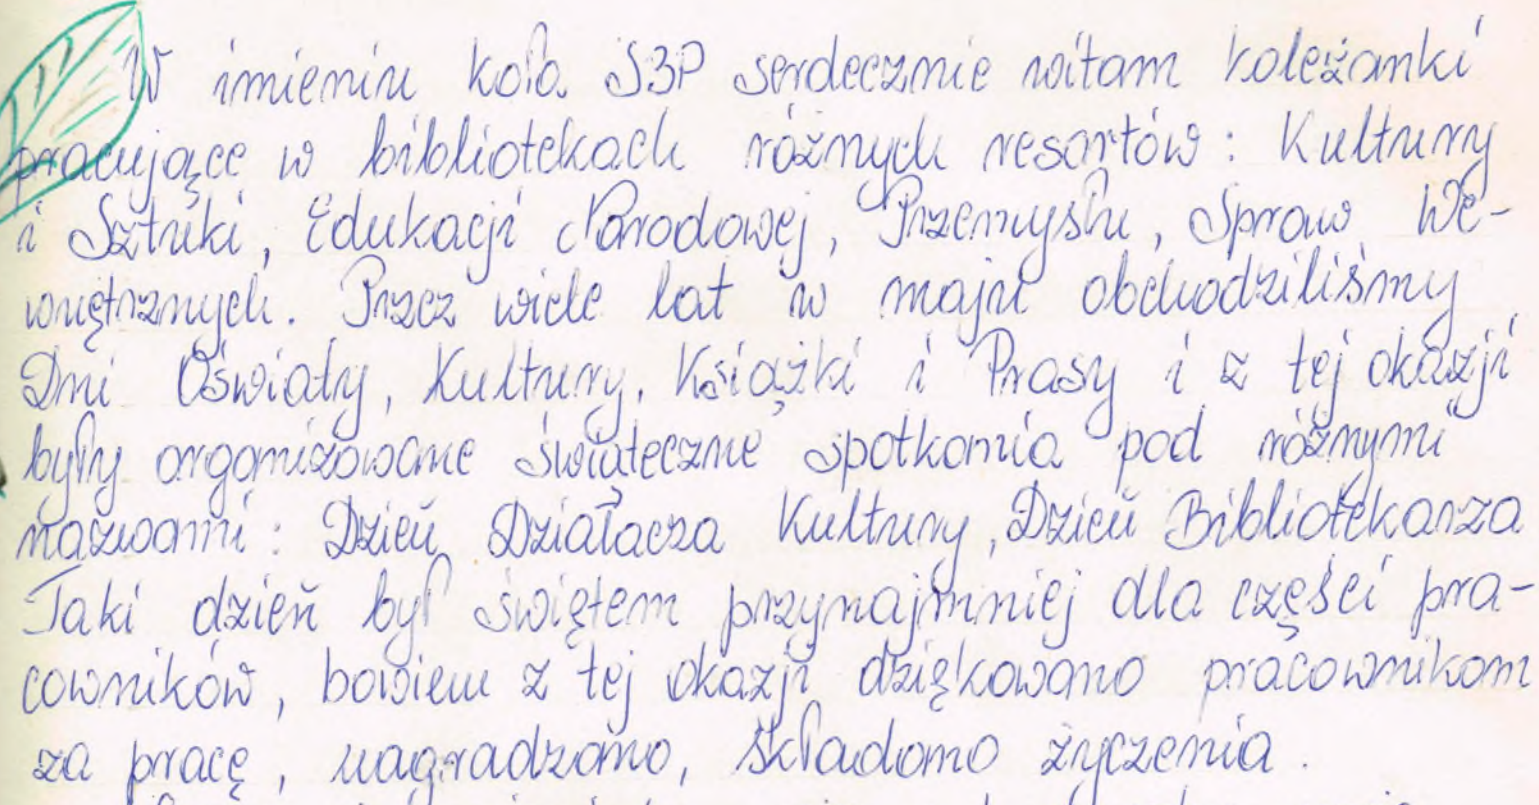 W imieniu koła SBP serdecznie witam koleżanki
pracujące w bibliotekach różnych resortów: Kultury
i Sztuki, Edukacji Narodowej, Przemysłu, Spraw We-
wnętrznych. Przez wiele lat w maju obchodziliśmy
Dni Oświaty, Kultury, Książki i Prasy i z tej okazji
były organizowane świąteczne spotkania pod różnymi
nazwami: Dzień Działacza Kultury, Dzień Bibliotekarza
Taki dzień był świętem przynajmniej dla części pra-
cowników, bowiem z tej okazji dziękowano pracownikom
za pracę, nagradzano, składano życzenia.